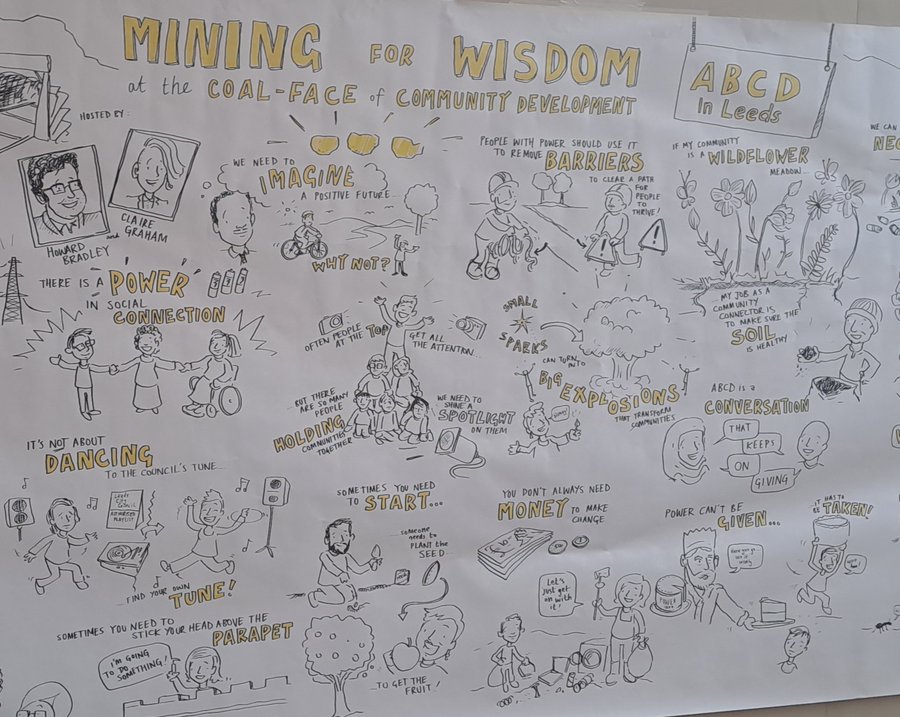 MINING FOR WISDOM
at the COAL-FACE of COMMUNITY DEVELOPMENT
ABCD
in Leeds
HOSTED BY:
HOWARD
BRADLEY
and
CLAIRE
GRAHAM
WE NEED TO
IMAGINE
A POSITIVE FUTURE
WHY NOT?
PEOPLE WITH POWER SHOULD USE IT
TO REMOVE BARRIERS
TO CLEAR A PATH
FOR
PEOPLE
TO
THRIVE!
IF MY COMMUNITY
IS A WILDFLOWER
MEADOW...
WE CAN
MY JOB AS A
COMMUNITY
CONNECTOR IS
TO MAKE SURE THE
SOIL
IS HEALTHY
THERE IS A POWER
IN SOCIAL
CONNECTION
OFTEN PEOPLE
AT THE TOP
GET ALL
THE ATTENTION...
...BUT THERE
ARE SO MANY
PEOPLE
HOLDING
COMMUNITIES
TOGETHER
WE NEED TO
SHINE A
SPOTLIGHT
ON THEM
SMALL
SPARKS
CAN TURN
INTO
BIG EXPLOSIONS
THAT TRANSFORM
COMMUNITIES
ABCD IS a
CONVERSATION
THAT
KEEPS
ON
GIVING
IT'S NOT ABOUT
DANCING
TO THE COUNCIL'S TUNE...
...FIND YOUR OWN
TUNE!
SOMETIMES YOU NEED
TO START...
...someone
needs to
PLANT the
SEED...
...TO GET THE
FRUIT!
YOU DON'T ALWAYS NEED
MONEY TO MAKE
CHANGE
Let's
just get
on with
it!
POWER CAN'T BE
GIVEN...
...IT HAS TO
BE TAKEN!
SOMETIMES YOU NEED TO
STICK YOUR HEAD ABOVE THE
PARAPET
I'M GOING
TO DO
SOMETHING!